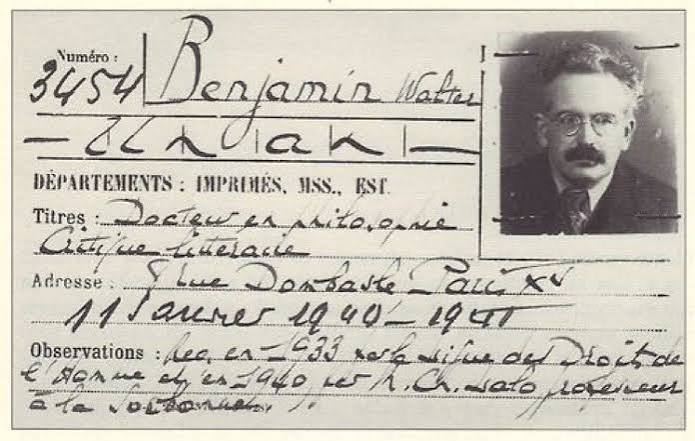 Numéro :
3454 Benjamin Walter
DÉPARTEMENTS : IMPRIMÉS, MSS., EST.
Titres : Docteur en philosophie
Critique littéraire
Adresse : rue Dombasle Paris XV
11 Janvier 1940 - 1940
Observations : en 1933 par la Ligue des Droits de
l'Homme et en 1940 par M. Ch. Lalo professeur
à la Sorbonne.